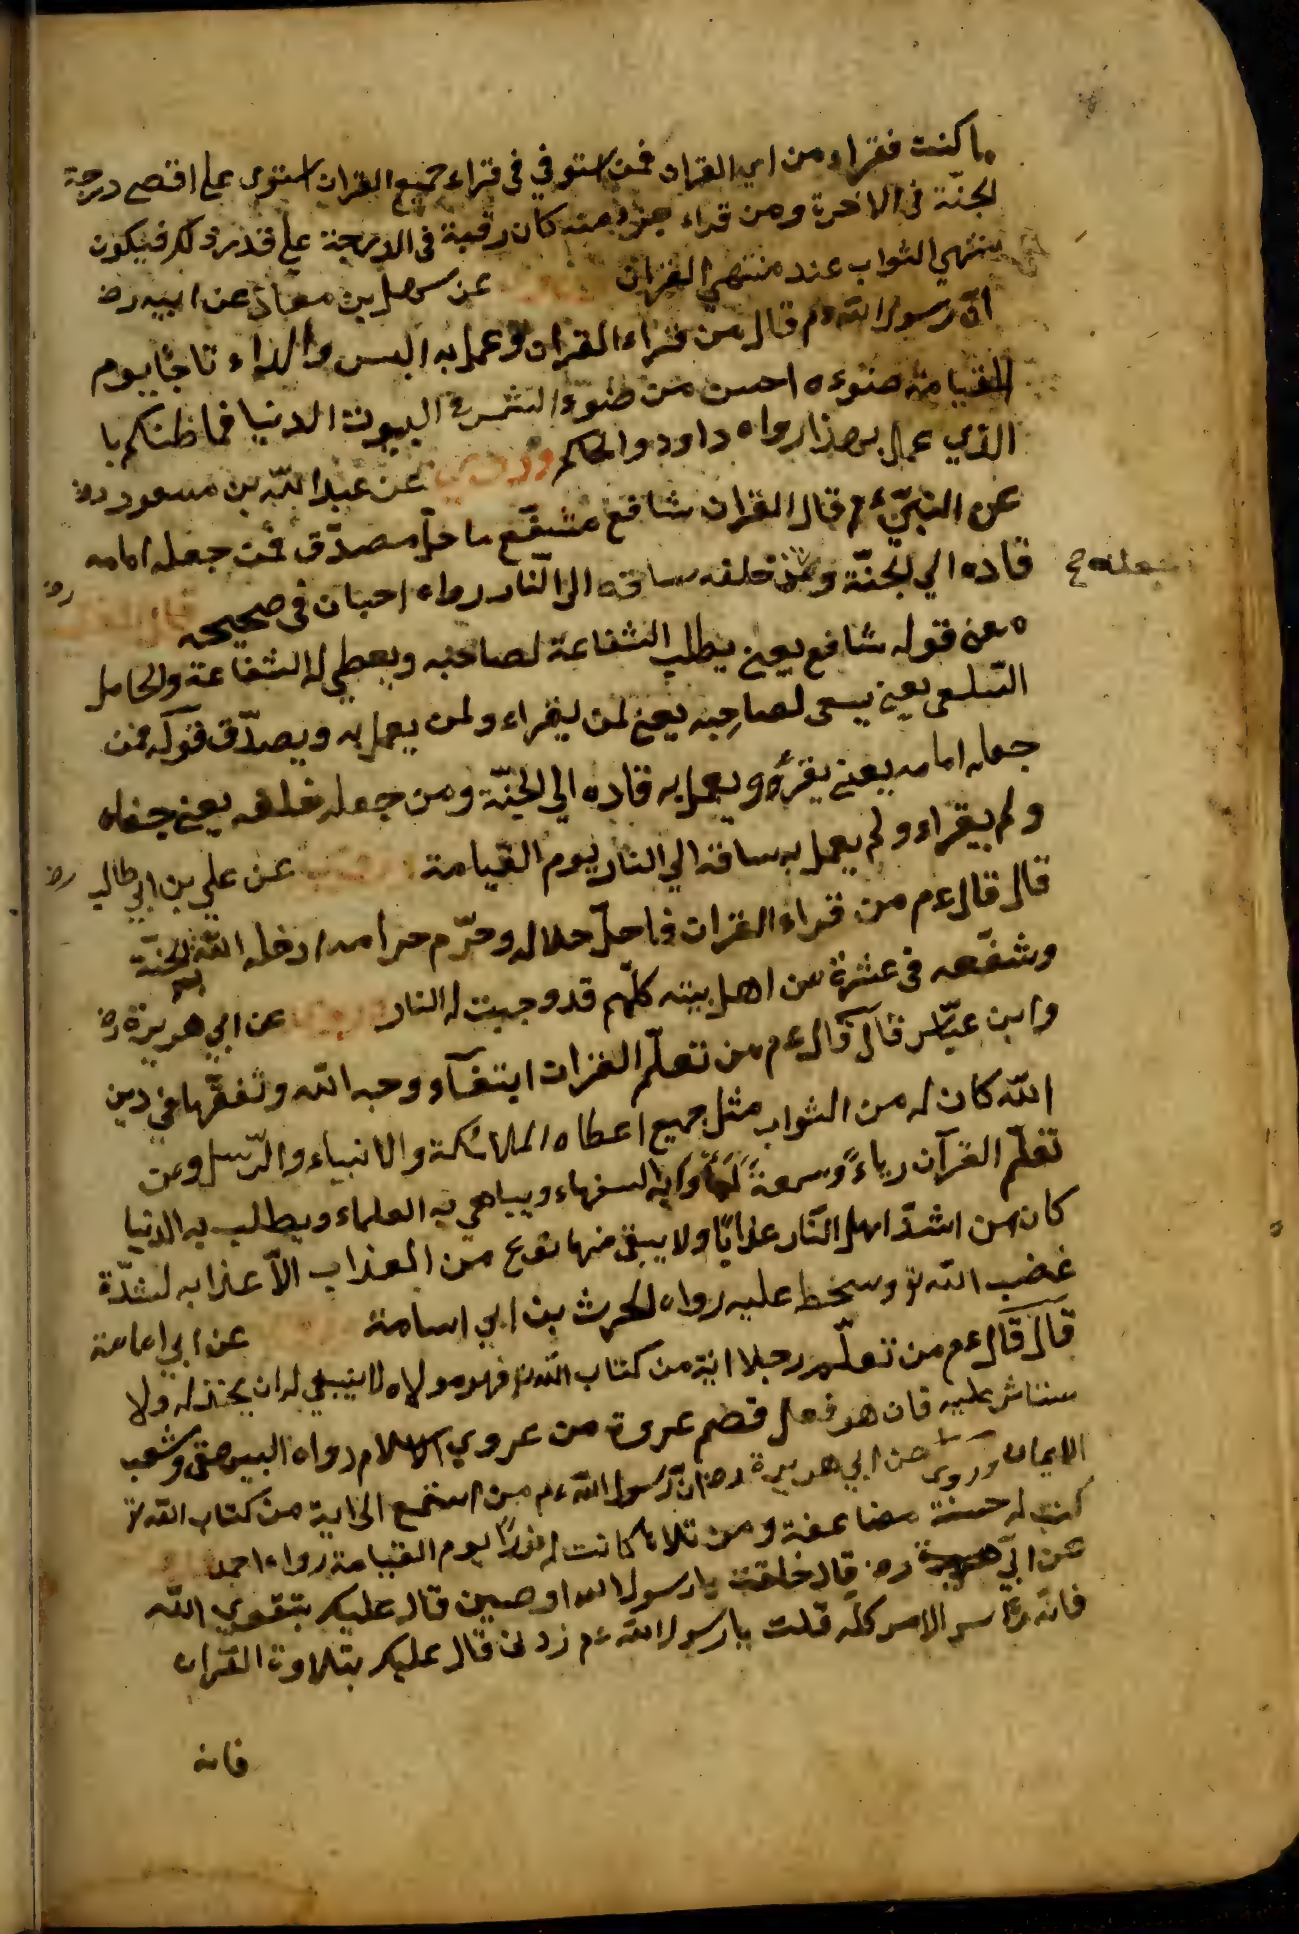 ما كنت تقراء من اي القران فمن استوفي في قراء جميع القران استوى على اقصى درجة
الجنّة فى الاخرة ومن قراء جزء منه كان رقية فى الدرجة على قدر ذلك فيكون
منتهي الثواب عند منتهي القران عن سهل بن معاذ عن ابيه رض
انّ رسول الله ءم قال من قراء القران وعمل به البس والداه تاجًا يوم
القيامة ضوءه احسن من ضوء الشمس البيوت الدنيا فما ظنكم با
الذي عمل بهذا رواه داود والحاكم وروي عن عبد الله بن مسعود رض
عن النبيّ ءم قال القران شافع مشفّع ماحل مصدّق فمن جعله امامه
قاده الي الجنّة ومن خلفه ساقه الى النّار رواه احبان فى صحيحه رض
جعله صح
معنى قوله شافع يعنى يطلب الشفاعة لصاحبه ويعطي له الشفاعة والحامل
يعنى يسعى لصاحبه يعنى لمن يقراء ولمن يعمل به ويصدّق قوله فمن
جعله امامه يعنى يقرؤه ويعمل به قاده الي الجنّة ومن جعله خلفه يعنى جفاه
ولم يقراء ولم يعمل به ساقه الي النار يوم القيامة عن علي بن ابي طالب رض
قال قال ءم من قراء القران فاحلّ حلاله وحرّم حرامه ادخله الله الجنّة
وشفّعه فى عشرة من اهل بيته كلّهم قد وجبت له النار عن ابي هريرة رض
وابن عبّاس قال قال ءم من تعلّم القران ابتغآء وجه الله وتفقّها في دين
الله كان له من الثواب مثل جميع اعطاه الملائكة والانبياء والرّسل ومن
تعلّم القرآن رياءً وسمعةً به السفهاء ويباهي به العلماء ويطلب به الدنيا
كان من اشدّ اهل النّار عذابًا ولا يبقى منها نوع من العذاب الّا عذابه لشدّة
غضب الله تع وسخط عليه رواه الحرث بن ابي اسامة عن ابي امامة
قال قال ءم من تعلّم رجلا اية من كتاب الله تع فهو مولاه لا ينبغي له ان يخذله ولا
يستأثر عليه فان هو فعل قصم عروة من عروي الاسلام رواه البيهقى وشعب
الايمان وروى عن ابي هريرة رض انّ رسول الله ءم من استمع الى اية من كتاب الله تع
كتب له حسنة مضاعفة ومن تلاها كانت له نورًا يوم القيامة رواه احمد
عن ابي رض قال يا رسول الله اوصيني قال عليك بتقوي الله
فانّه رأس الامر كلّه قلت يا رسول الله ءم زدنى قال عليك بتلاوة القران
فانه